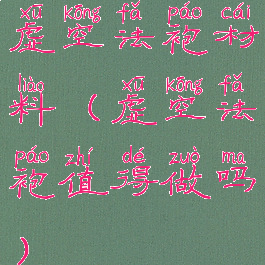 xū kōng fǎ páo cái
虚空法袍材
liào xū kōng fǎ
料(虚空法
páo zhí dé zuò ma
袍值得做吗
)